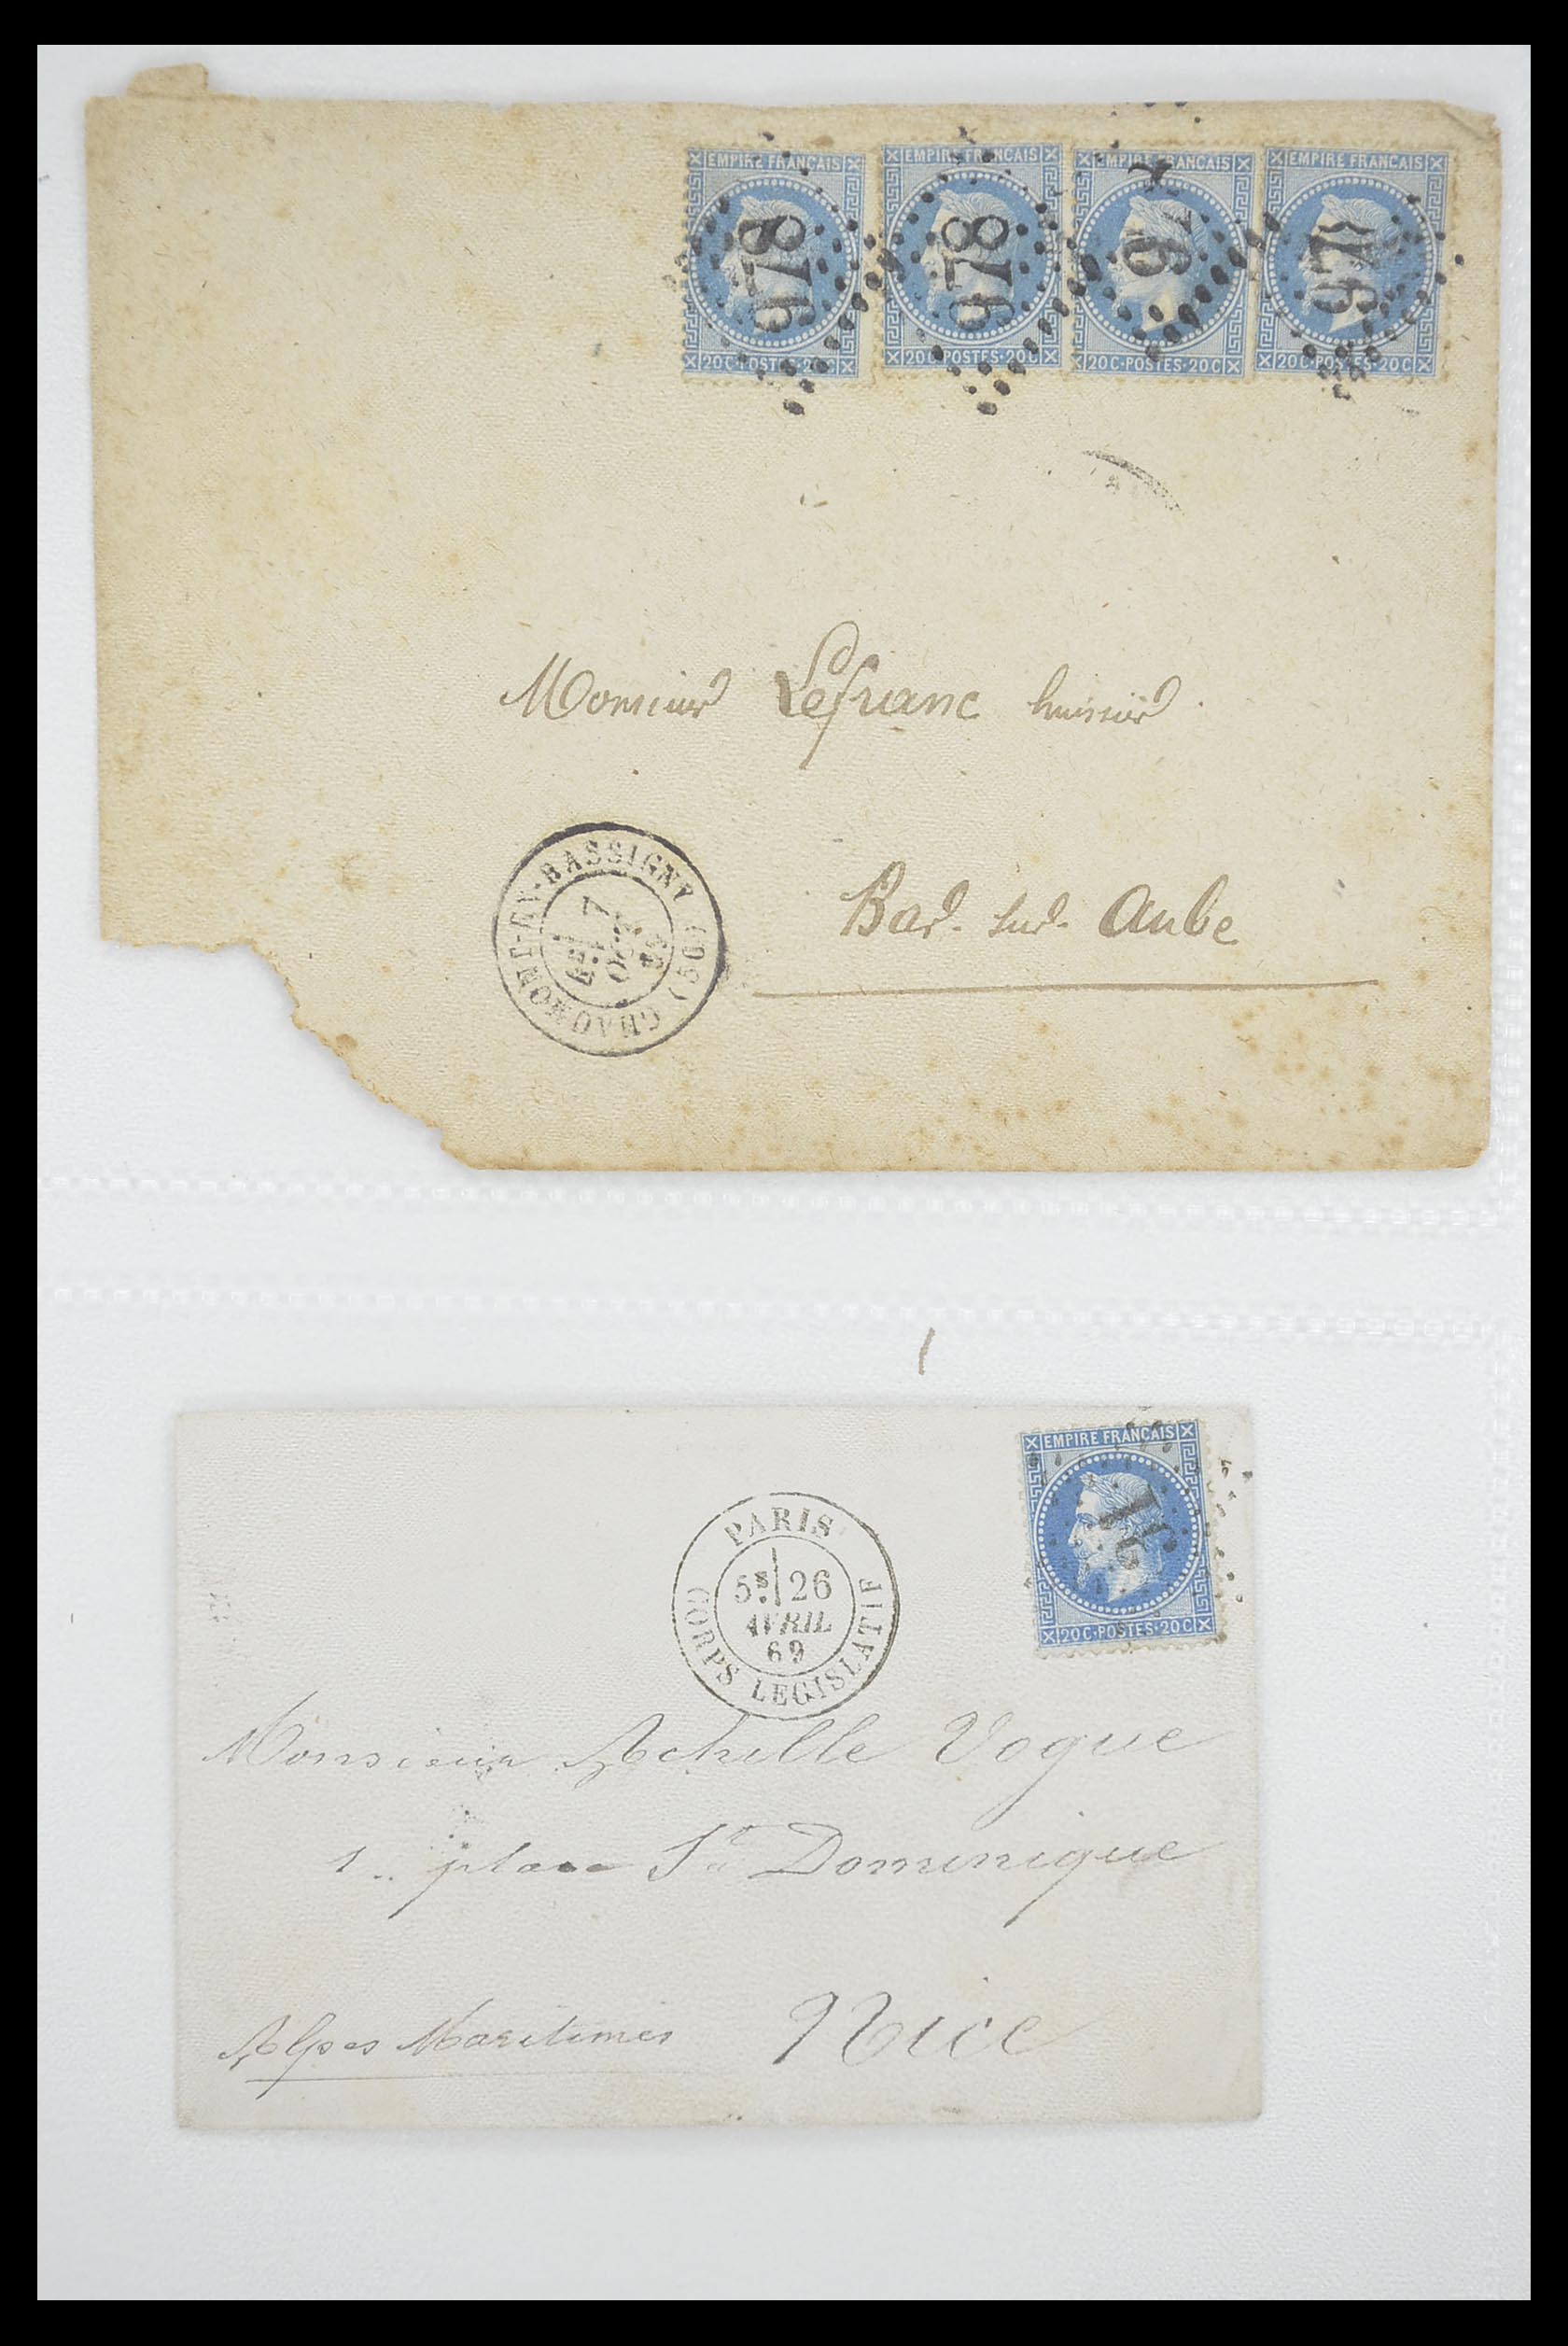 EMPIRE FRANCAIS EMPIRE FRANCAIS EMPIRE FRANCAIS EMPIRE FRANCAIS
978 978 978
20C·POSTES·20C 20C·POSTES·20C 20C·POSTES·20C 20C·POSTES·20C
Monsieur Lefranc huissier
CHAUMONT-EN-BASSIGNY (50)
7
OCT.
Bar-sur-Aube
EMPIRE FRANCAIS
20C·POSTES·20C
PARIS
5E 26
AVRIL
69
CORPS LEGISLATIF
Monsieur Achille Vogue
1.. place St Dominique
Alpes Maritimes Nice